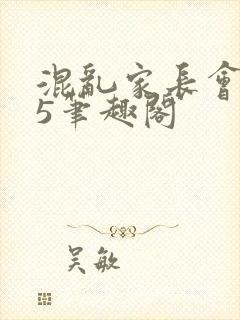 混亂家長會
5筆趣閣
吴敏